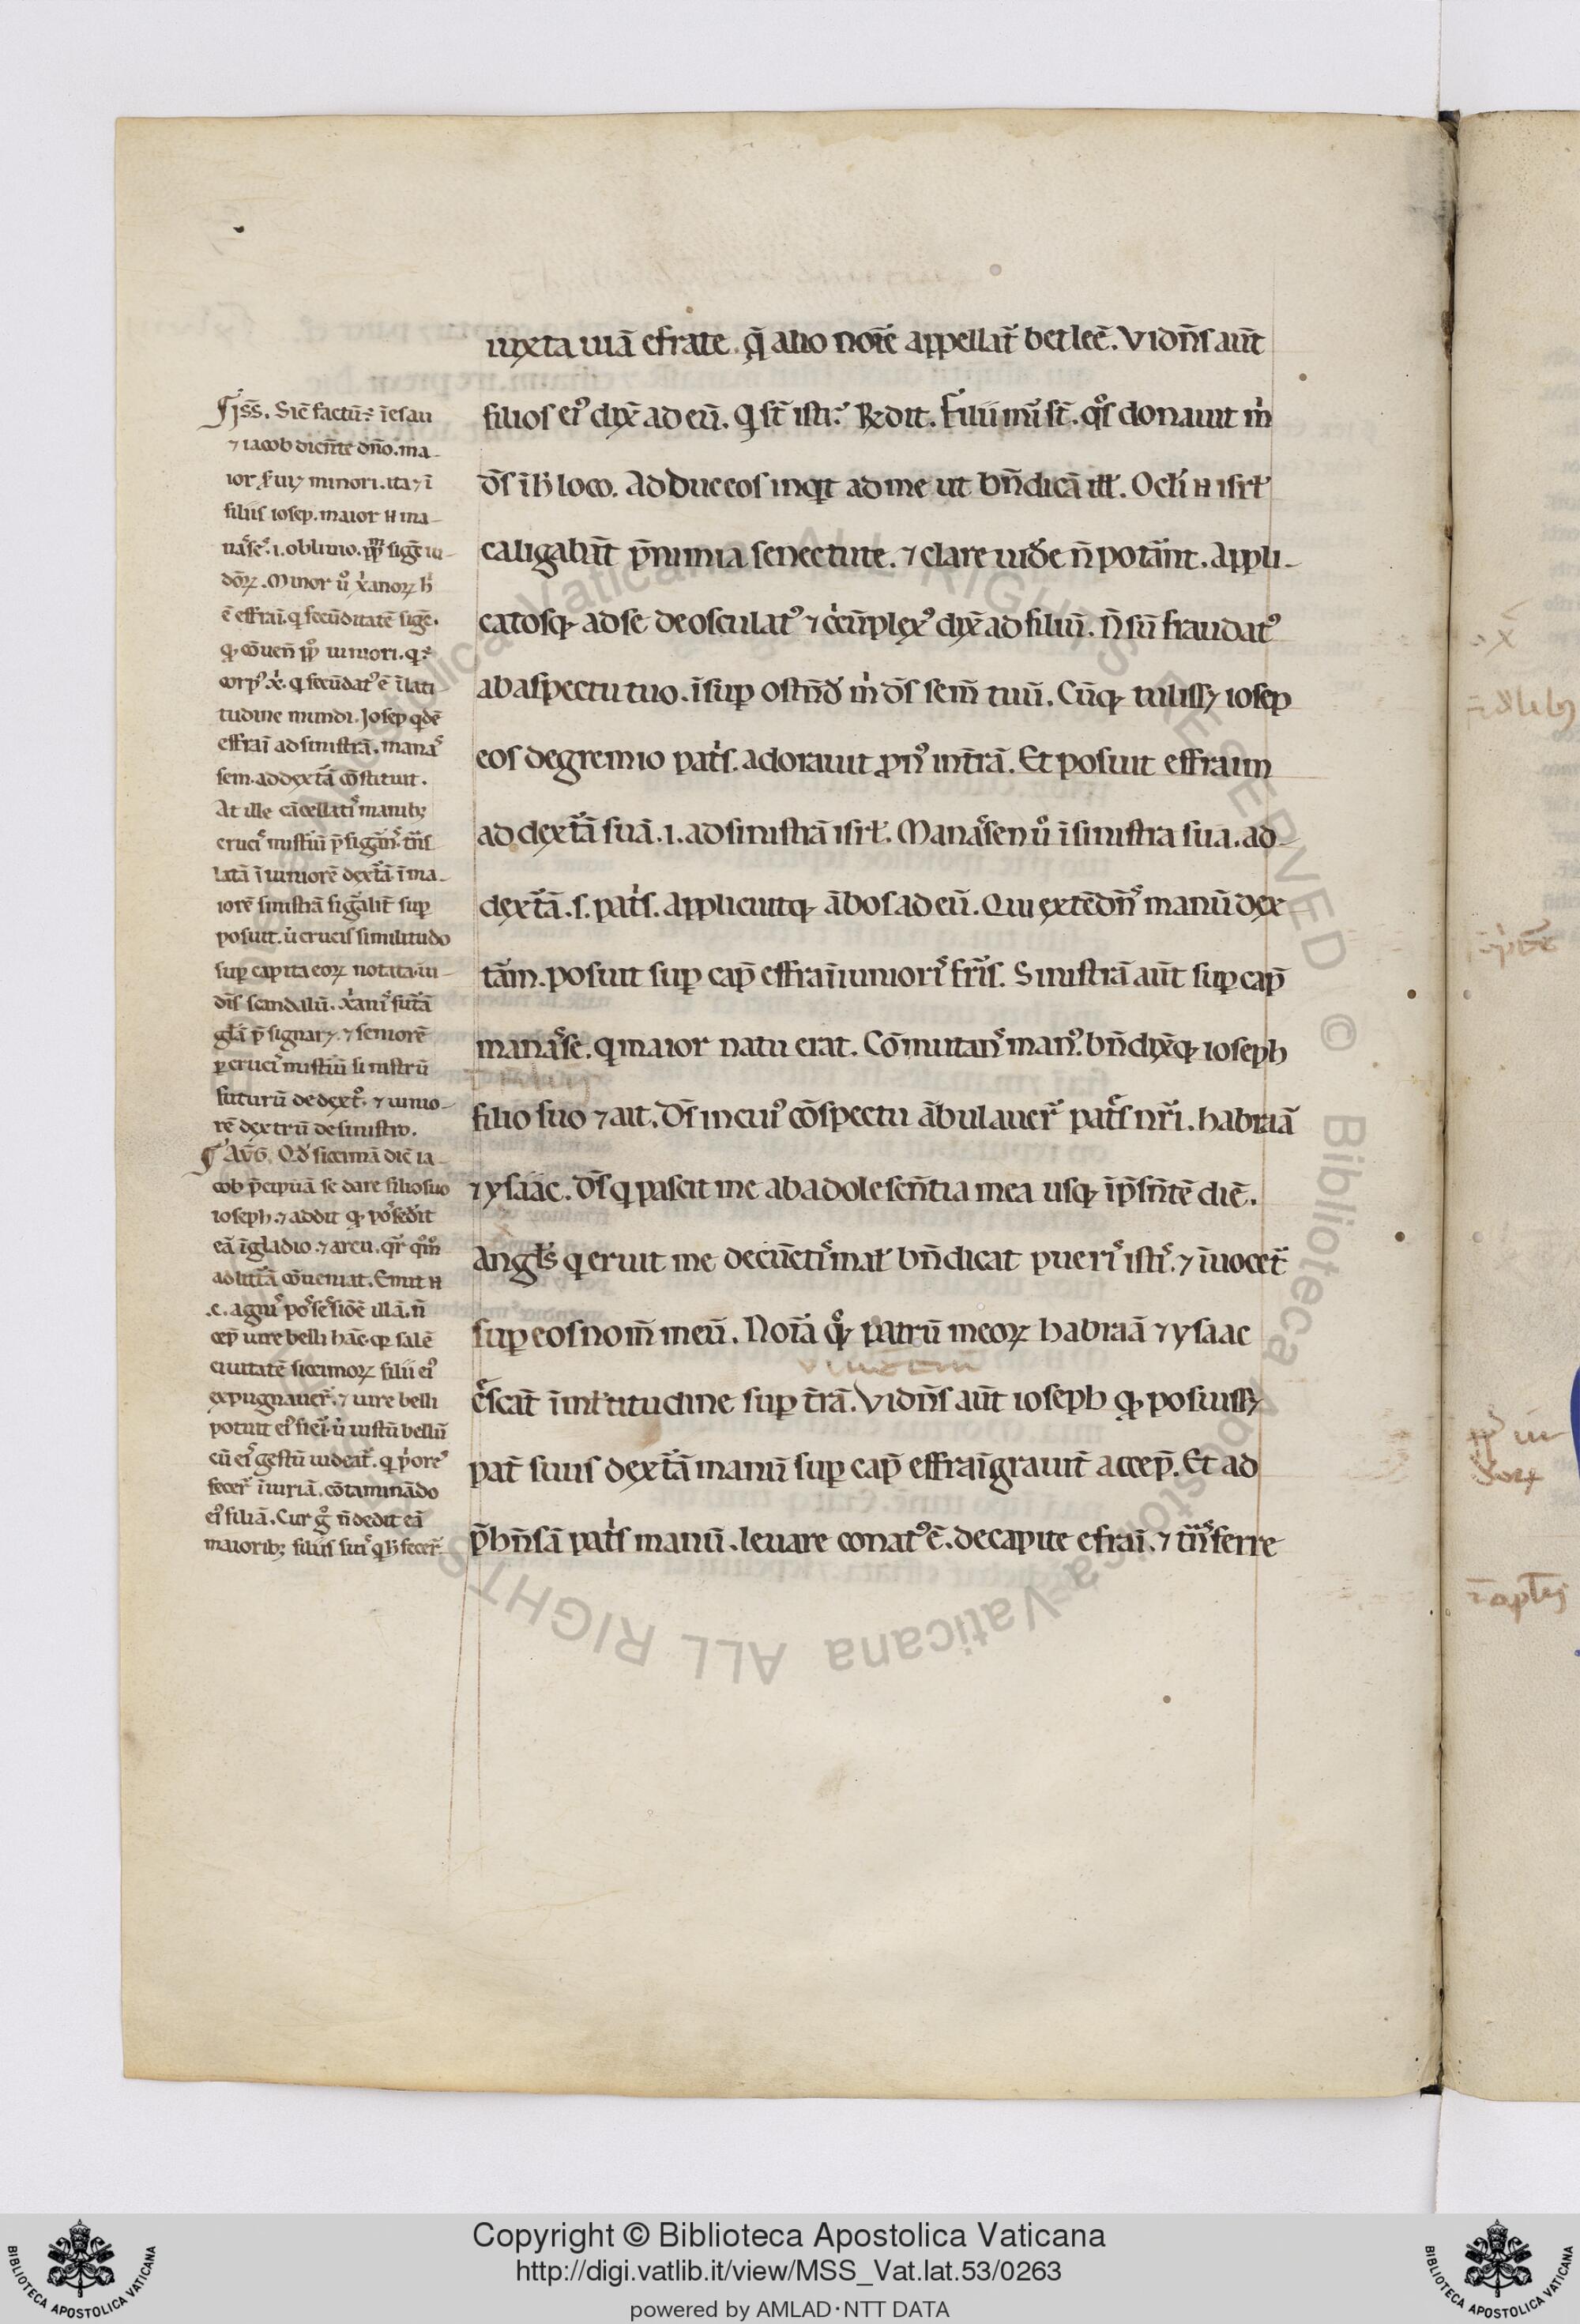 iuxta uiā efrate. q̄ alio noīe appellat᷑ betleē. Vidn̄s aūt
filios eiꝰ dix̄ ad eū. Qͥ st̄ isti? R̄dit. Filii mī st̄. qͦs donauit m̍
ds̄ ī h̍ loco. Adduc eos inqͥt ad me ut bn̄dicā ill̕. Ocl̕i n̄ isrl̕
caligabāt p̄ nimia senectute. ⁊ clare uid̕e n̄ pot̕ant. Appli-
catosqꝫ ad se deosculatꝰ ⁊ cͥcūplexꝰ dix̄ ad filiū. N̄ sū fraudatꝰ
ab aspectu tuo. īsuꝑ ostn̄d̕ m̍ ds̄ sem̄ tuū. Cūqꝫ tulissꝫ iosep
eos de gremio pat̍s. adorauit ꝓnꝰ in t̄rā. Et posuit effraim
ad dext̕ā suā. i. ad sinistrā isrl̕. Manasen ů ī sinistra sua. ad
dext̕ā .s. pat̍s. applicuitqꝫ ābos ad eū. Qui extēdn̄s manū dex
t̕am. posuit suꝑ cap̄ effraī iunioris fr̄is. Sinistrā aūt suꝑ cap̄
manase. qͥ maior natu erat. Cōmutans manꝰ. bn̄dix̄qꝫ ioseph
filio suo ⁊ ait. Ds̄ in cuiꝰ cōspectu ābulauer̄ pat̄s nr̄i. habraā
⁊ ysaac. Ds̄ qͥ pascit me ab adolescn̄tia mea usqꝫ ī p̄sn̄tē diē.
Angl̕s qͥ eruit me de cūctis mal̕ bn̄dicat pueris istis. ⁊ īuocet᷑
suꝑ eos nom̄ meū. Noīa qͦqꝫ patrū meoꝝ habraā ⁊ ysaac
c̕scāt ī ml̕titudine suꝑ t̄rā. Vidn̄s aūt ioseph qꝫ posuissꝫ
pat̄ suus dext̕ā manū suꝑ cap̄ effraī grauit̄ accep̄. Et ad
p̄hn̄sā pat̍s manū. leuare conatꝰ ē. de capite efraī. ⁊ tͣnsferre
¶ Iss̄. Sic̄ factū ē ī esau
⁊ iacob dicn̄te dn̄o. ma-
ior s̕uiꝫ minori. ita ⁊ ī
filiis iosep. maior n̄ ma-
nases. i. obliuio. ppl̄m sigͣt iu-
doꝝ. Minor ů x̍anoꝝ h̍
ē effraī. qͥ fecūditatē sigͣt.
qꝫ cōuen̄ ppl̄o iuniori. qͥ ē
corpꝰ x̍. qͥ fecūdatꝰ ē ī lati-
tudine mundi. Iosep qͥdē
effraī ad sinistrā. manas
sem. ad dext̕ā cōstituit.
At ille cācellatis manibꝫ
crucis mist̕iū p̄figͣns. tͣns
latā ī iuniorē dext̕ā. ī ma-
iorē sinistrā figͣbilit̄ suꝑ
posuit. u̍ crucis similitudo
suꝑ capita eoꝝ notata. iu-
dīs scandalū. x̍anis futͣā
gl̄ā p̄signarꝫ. ⁊ seniorē
ꝑ crucis mist̕iū sinistrū
futurū de dextͦ. ⁊ iunio-
rē dextrū de sinistro.
¶ Aug̕. Qd̕ siccimā dic̄ ia-
cob p̄cipuā se dare filio suo
ioseph. ⁊ addit qꝫ possedit
eā ī gladio. ⁊ arcu. qͥr qͦm̄
ad litt̕ā cōueniat. Emit n̄
.c. agnis possessiōē illā. n̄
cep̄ iure belli hāc. qꝫ salē
ciuitatē siccimoꝝ filii eiꝰ
expugnauer̄. ⁊ iure belli
potuit eiꝰ fieī. u̍ iustū bellū
cū eis gestū uideat᷑. qͥ p̍ores
fecer̄ īiuriā. cōtaminādo
eiꝰ filiā. Cur g̊ n̄ dedit eā
maioribꝫ filiis suis qͥ h̍ fecer̄
Copyright © Biblioteca Apostolica Vaticana
http://digi.vatlib.it/view/MSS_Vat.lat.53/0263
powered by AMLAD·NTT DATA